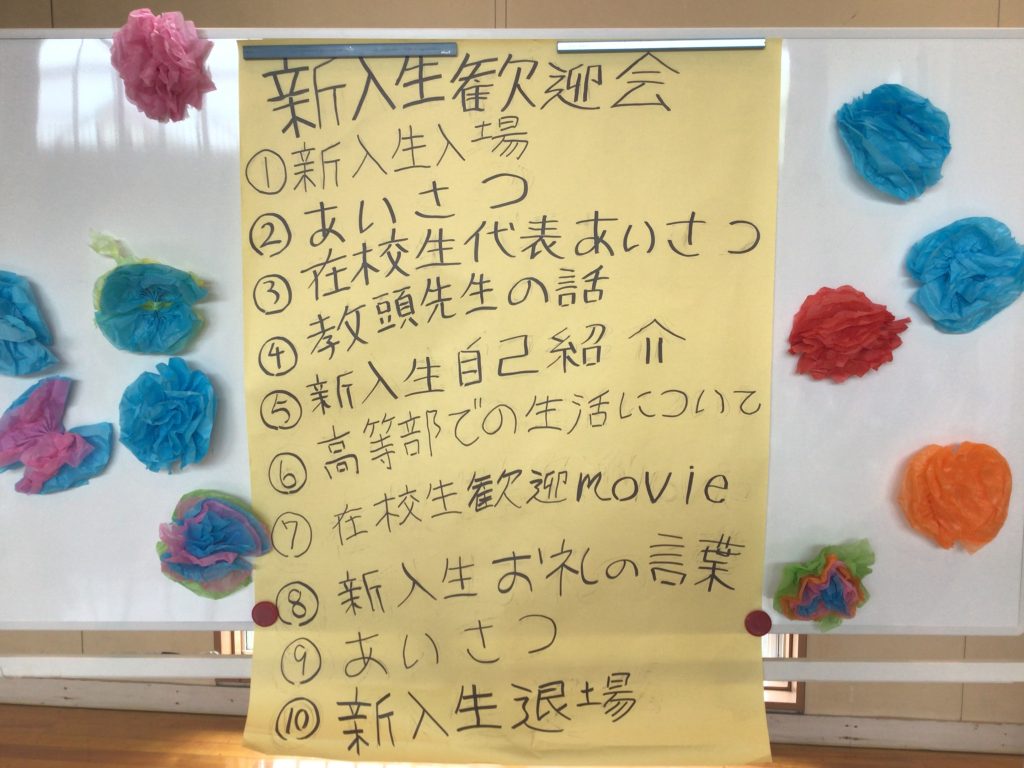 新入生歓迎会
①新入生入場
②あいさつ
③在校生代表あいさつ
④教頭先生の話
⑤新入生自己紹介
⑥高等部での生活について
⑦在校生歓迎movie
⑧新入生お礼の言葉
⑨あいさつ
⑩新入生退場